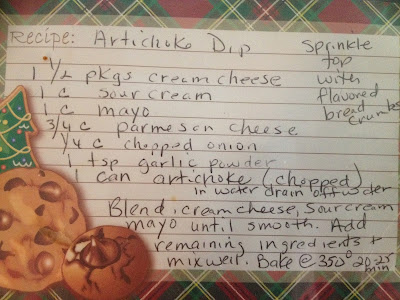 Recipe: Artichoke Dip
Sprinkle
top
with
flavored
bread
crumbs
1 1/2 pkgs cream cheese
1 c sour cream
1 c mayo
3/4 c parmesan cheese
1/4 c chopped onion
1 tsp garlic powder
1 can artichoke (chopped)
in water drain off water
Blend, cream cheese, sour cream
mayo until smooth. Add
remaining ingredients +
mix well. Bake @ 350° 20-25
min